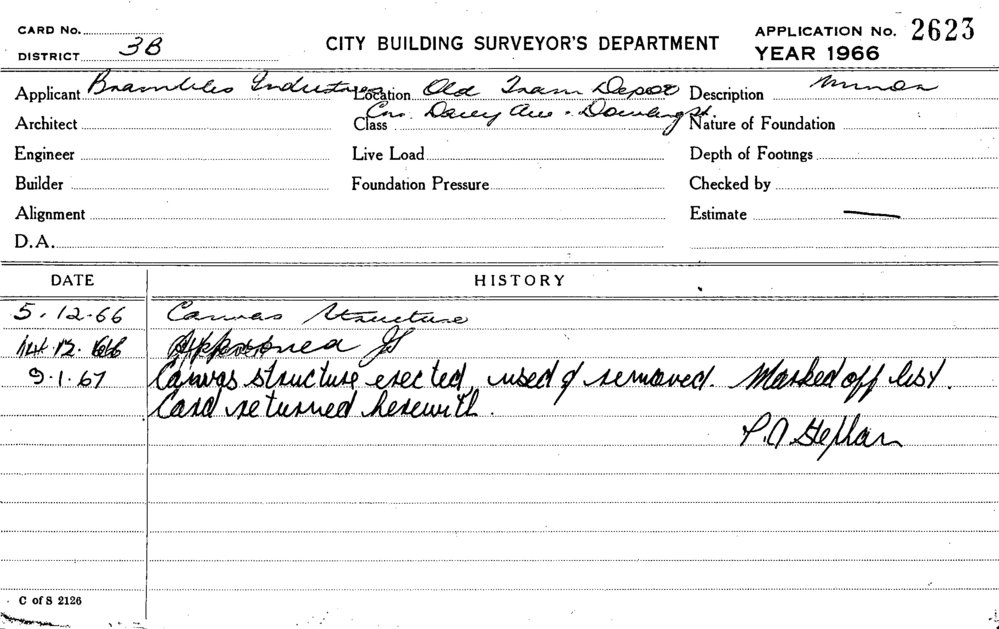 CARD No.
DISTRICT 3B
CITY BUILDING SURVEYOR'S DEPARTMENT
APPLICATION No. 2623
YEAR 1966
Applicant Brambles Industries Location Old Tram Depot Description Minor
Architect Class Cnr. Dacey Ave - Dowling St. Nature of Foundation
Engineer Live Load Depth of Footings
Builder Foundation Pressure Checked by
Alignment Estimate —
D.A.
DATE HISTORY
5.12.66 Canvas Structure
14.12.66 Approved
9.1.67 Canvas structure erected, used & removed. Marked off list.
Card returned herewith.
C of S 2126